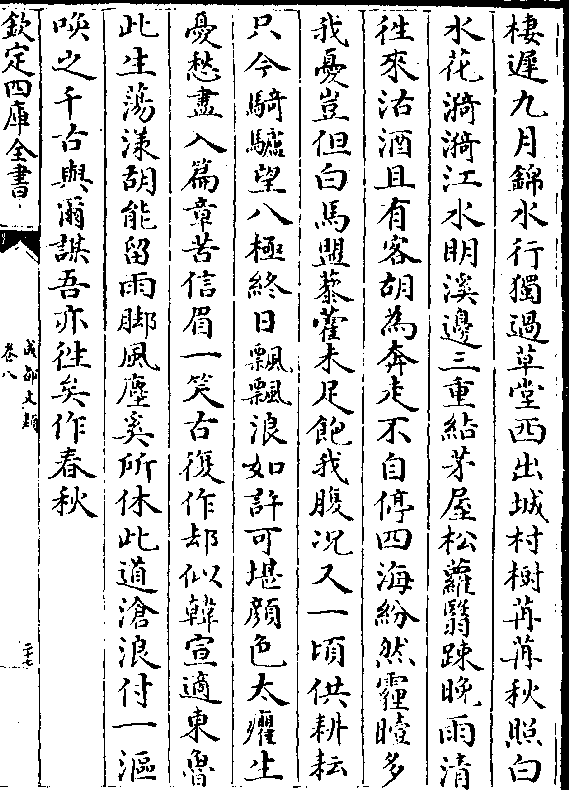 棲遲九月錦水行獨過草堂西出城村樹苒苒秋照白
水花漪漪江水明溪邊三重結茅屋松蘿翳踈晚雨清
徃來沽酒且有客胡為奔走不自停四海紛然霾曀多
我憂豈但白馬盟藜藿未足飽我腹况又一頃供耕耘
只今騎驢望八極終日飄飄浪如許可堪顔色太癯生
憂愁盡入篇章苦信眉一笑古復作却似韓宣適東魯
此生蕩漾胡能留雨脚風塵奚所休此道滄浪付一漚
喚之千古與爾謀吾亦徃矣作春秋
欽定四庫全書
成都文類
卷八
三七